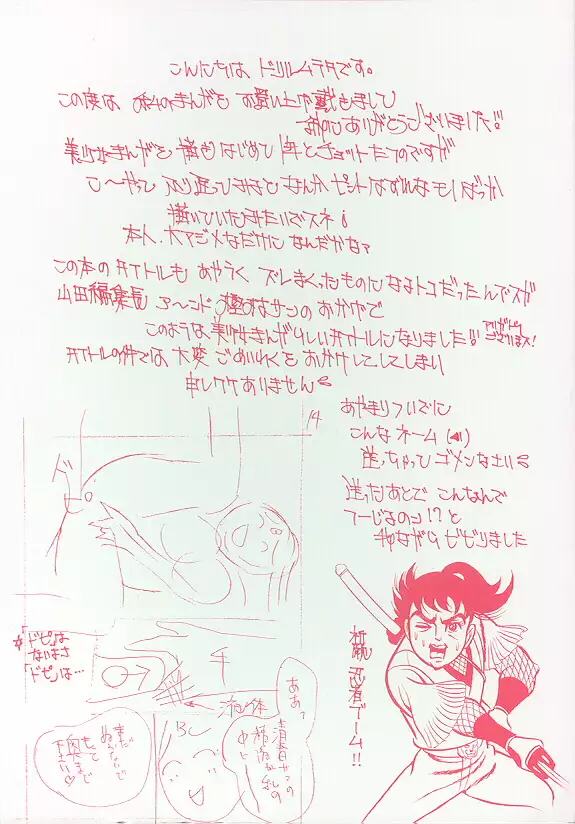 こんにちは ドリルムラタです。
この度は 私のまんがを お買い上げ戴きまして
まことにありがとうございました!!
美少女まんがを 描きはじめて 1年とチョットたつのですが
こ〜やって ふり返ってみると なんか ピントはずれなモノばっか
描いていたみたいでスネ!
本人、大マジメなだけに なんだかなァ
この本の タイトルも あやうく ズレまくったものになるトコだったんでスガ
山田編集長 アーンド サンのおかげで
このような美少女まんがらしいタイトルになりました!!
アリガトウございまス!
タイトルの件では 大変 ごめいわくを おかけしてしまい
申しワケありません
あやまりついでに
こんな ネーム
送っちゃって ゴメンなさい
送ったあとで こんなんで
つーじるのか!?と
我ながら ビビりました
14
ド
「ドピ」は
ないさ
「ドピ」は…
チ
液体
BC
ああっ
まだ
奥まで
忍者ゲーム!!